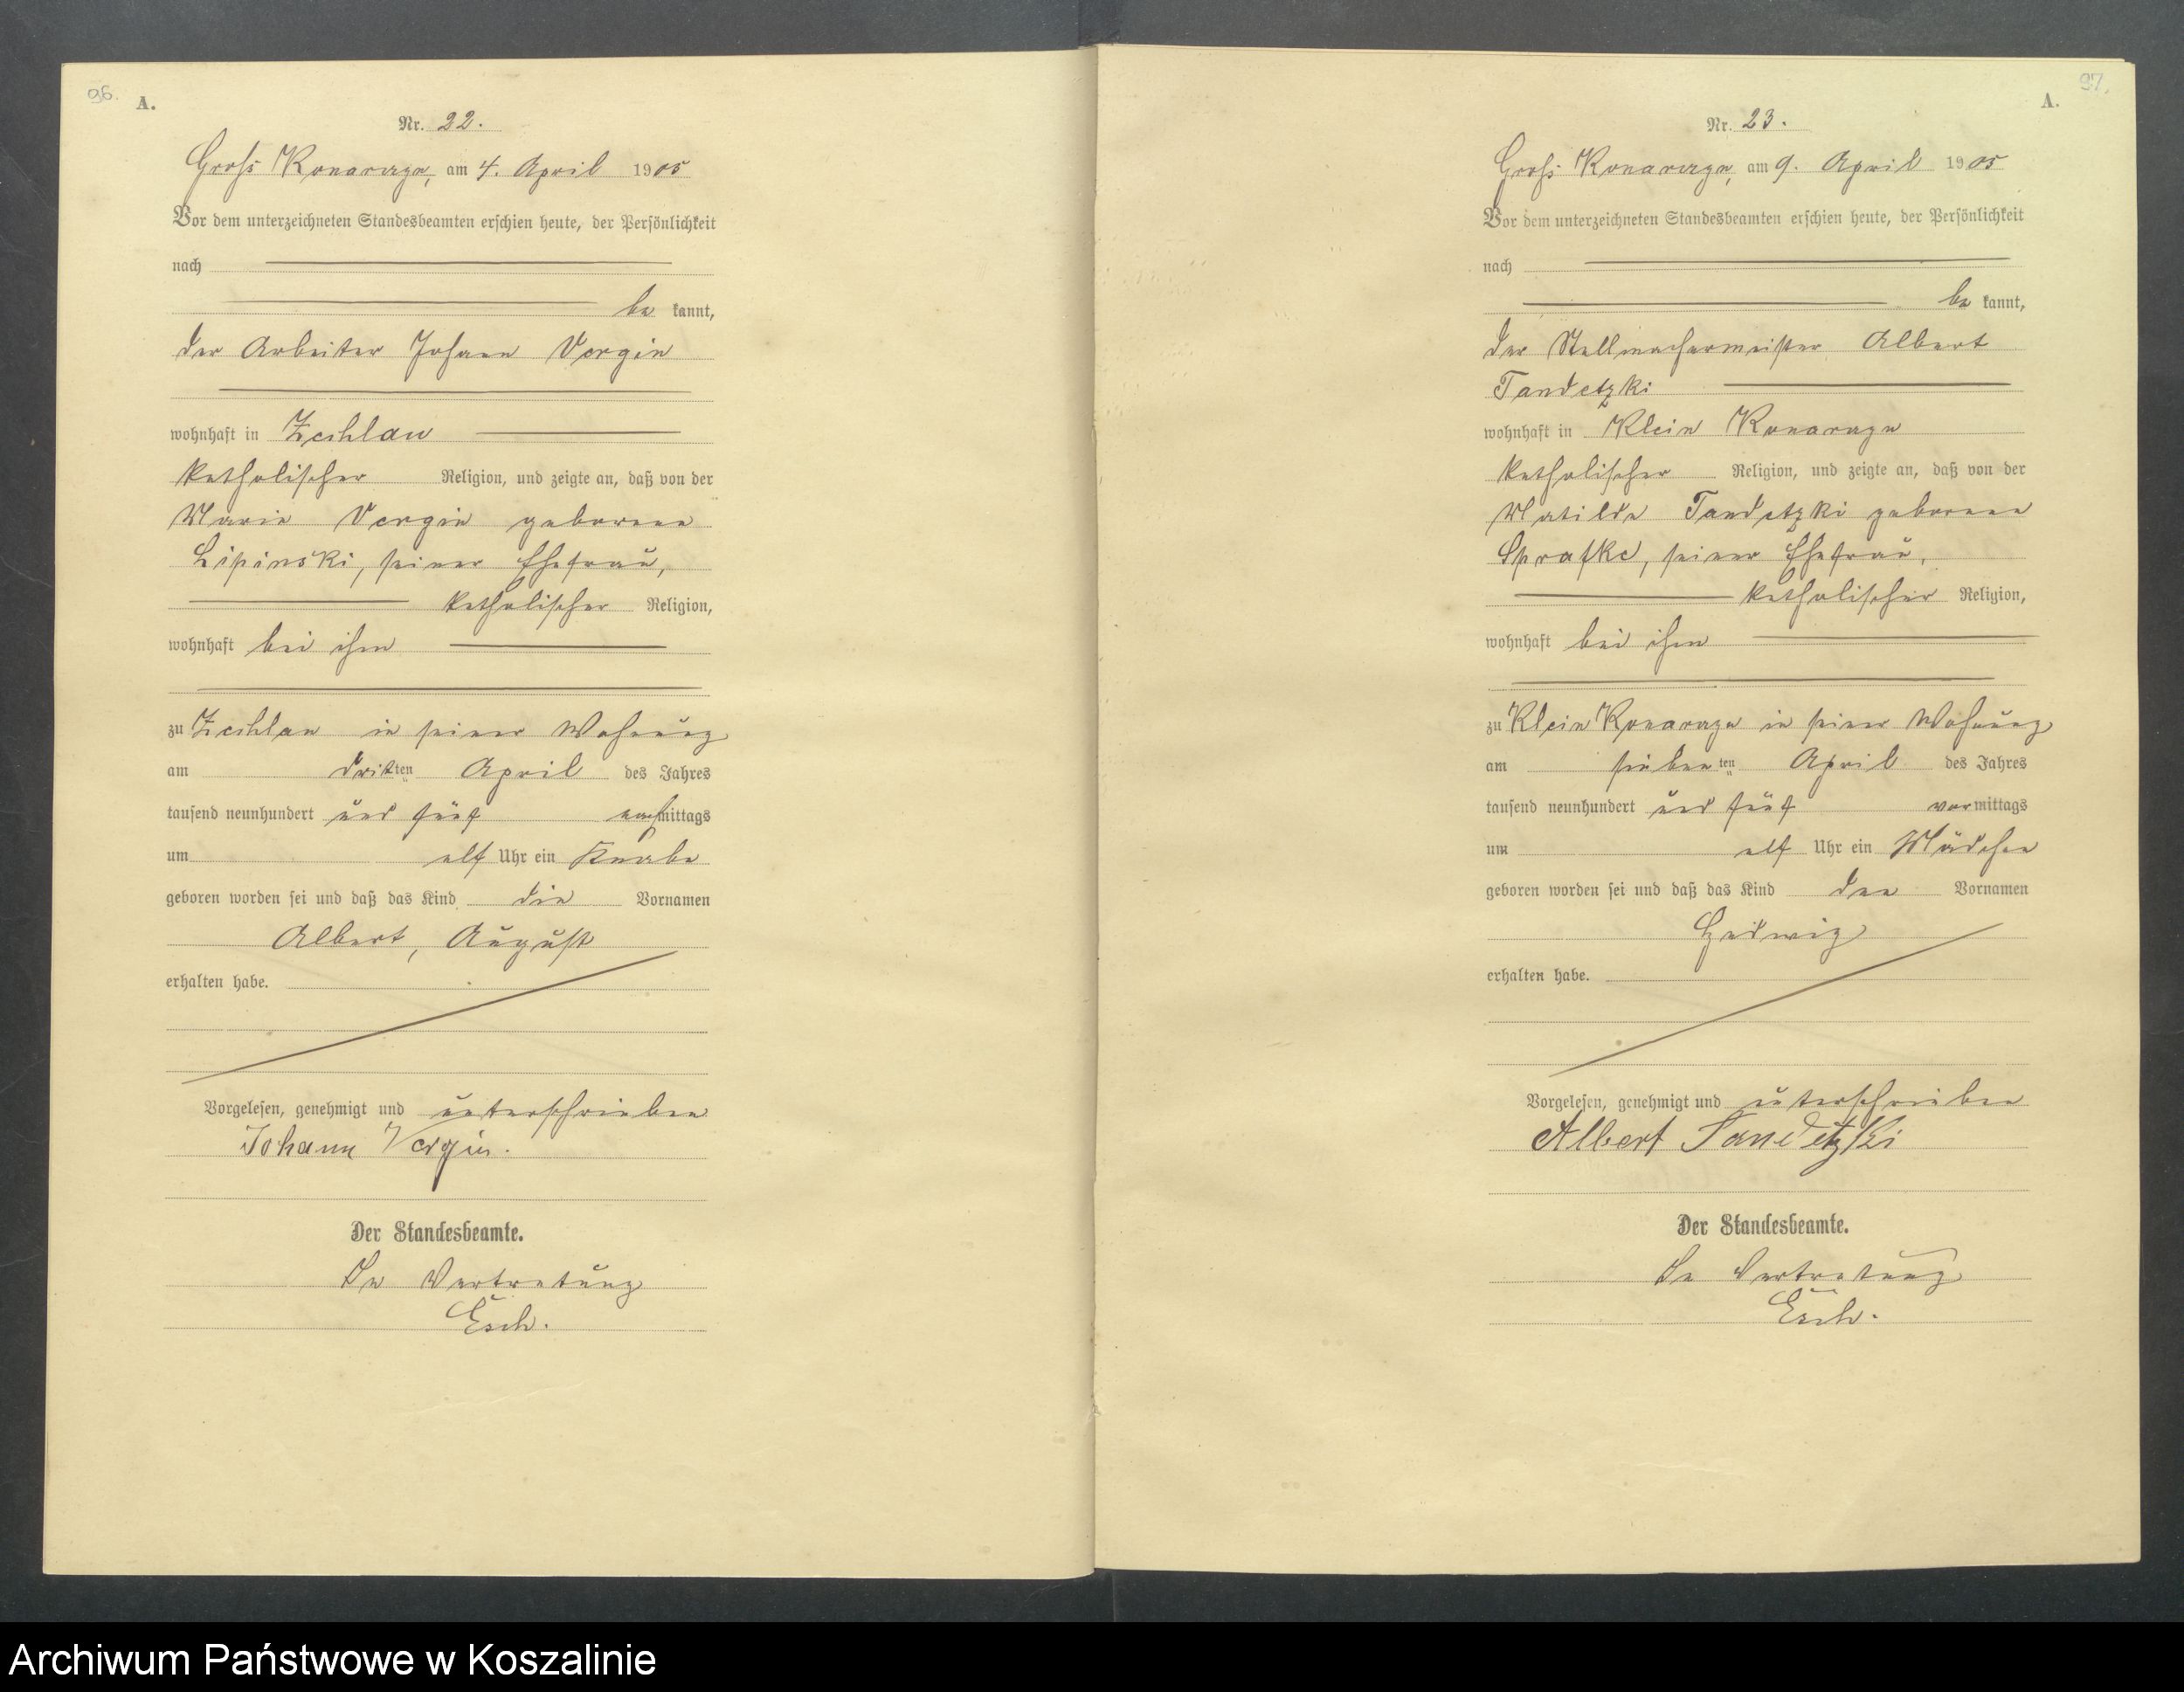 96.
A.
Nr. 22.
Gross Konarzyn, am 4. April 1905
Vor dem unterzeichneten Standesbeamten erschien heute, der Persönlichkeit
nach
be kannt,
der Arbeiter Johann Vergin
wohnhaft in Zechlau
katholischer Religion, und zeigte an, daß von der
Marie Vergin geborene
Lipinski, seiner Ehefrau,
katholischer Religion,
wohnhaft bei ihm
zu Zechlau in seiner Wohnung
am dritten April des Jahres
tausend neunhundert und fünf nachmittags
um elf Uhr ein Knabe
geboren worden sei und daß das Kind die Vornamen
Albert, August
erhalten habe.
Vorgelesen, genehmigt und unterschrieben
Johann Vergin.
Der Standesbeamte.
In Vertretung
Esch.
97.
A.
Nr. 23.
Gross Konarzyn, am 9. April 1905
Vor dem unterzeichneten Standesbeamten erschien heute, der Persönlichkeit
nach
be kannt,
der Stellmachermeister Albert
Tandetzki
wohnhaft in Klein Konarzyn
katholischer Religion, und zeigte an, daß von der
Matilde Tandetzki geborene
Sprafke, seiner Ehefrau,
katholischer Religion,
wohnhaft bei ihm
zu Klein Konarzyn in seiner Wohnung
am siebenten April des Jahres
tausend neunhundert und fünf vormittags
um elf Uhr ein Mädchen
geboren worden sei und daß das Kind den Vornamen
Hedwig
erhalten habe.
Vorgelesen, genehmigt und unterschrieben
Albert Tandetzki
Der Standesbeamte.
In Vertretung
Esch.
Archiwum Państwowe w Koszalinie